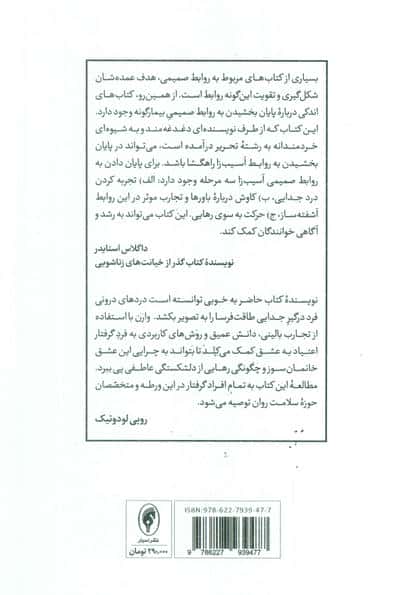 بسیاری از کتاب‌های مربوط به روابط صمیمی، هدف عمده‌شان
شکل‌گیری و تقویت این‌گونه روابط است. از همین‌رو، کتاب‌های
اندکی دربارهٔ پایان بخشیدن به روابط صمیمیِ بیمارگونه وجود دارد.
این کتاب که از طرف نویسنده‌ای دغدغه‌مند و به شیوه‌ای
خردمندانه به رشتهٔ تحریر درآمده است، می‌تواند در پایان
بخشیدن به روابط آسیب‌زا راهگشا باشد. برای پایان دادن به
روابط صمیمی آسیب‌زا سه مرحله وجود دارد: الف) تجربه کردن
درد جدایی، ب) کاوش دربارهٔ باورها و تجارب موثر در این روابط
آشفته‌ساز، ج) حرکت به سوی رهایی. این کتاب می‌تواند به رشد و
آگاهی خوانندگان کمک کند.
داگلاس اسنایدر
نویسندهٔ کتاب گذر از خیانت‌های زناشویی
نویسندهٔ کتاب حاضر به خوبی توانسته است دردهای درونی
فرد درگیرِ جدایی طاقت‌فرسا را به تصویر بکشد. وارن با استفاده
از تجارب بالینی، دانش عمیق و روش‌های کاربردی به فردِ گرفتار
اعتیاد به عشق کمک می‌کند تا بتواند به چرایی این عشق
خانمان‌سوز و چگونگی رهایی از دلشکستگی عاطفی پی ببرد.
مطالعهٔ این کتاب به تمام افراد گرفتار در این ورطه و متخصصان
حوزهٔ سلامت روان توصیه می‌شود.
روبی لودوتیک
ISBN: 978-622-7939-47-7
9 786227 939477
نشر اسبار
۲۹۰,۰۰۰ تومان